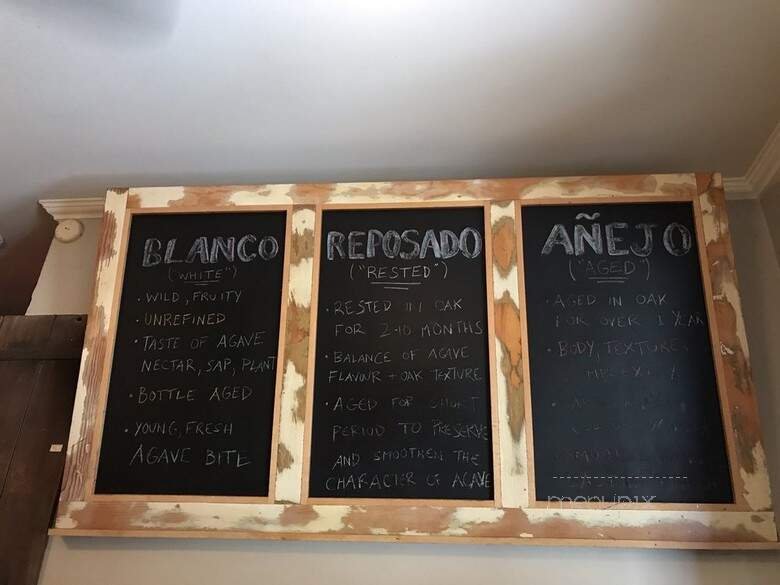 BLANCO
("WHITE")
• WILD, FRUITY
• UNREFINED
• TASTE OF AGAVE
NECTAR, SAP, PLANT
• BOTTLE AGED
• YOUNG, FRESH
AGAVE BITE
REPOSADO
("RESTED")
• RESTED IN OAK
FOR 2-10 MONTHS
• BALANCE OF AGAVE
FLAVOUR + OAK TEXTURE
• AGED FOR SHORT
PERIOD TO PRESERVE
AND SMOOTHEN THE
CHARACTER OF AGAVE
AÑEJO
("AGED")
• AGED IN OAK
FOR OVER 1 YEAR
• BODY, TEXTURE,
menupix